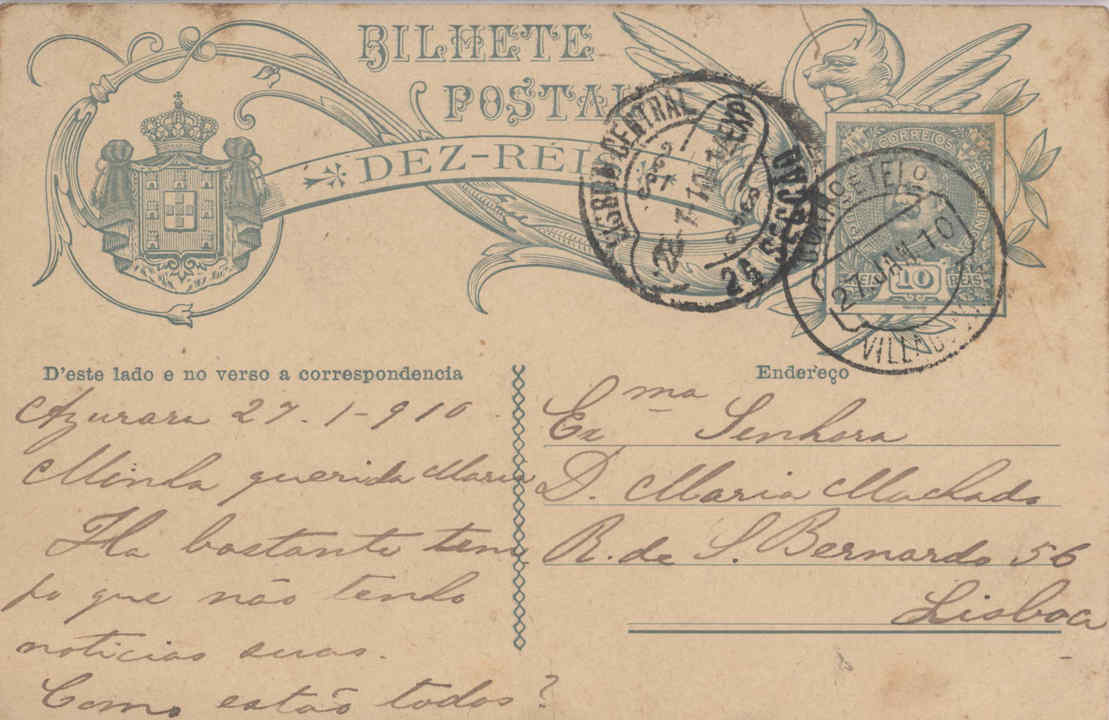 BILHETE
POSTAL
DEZ-RÉIS
CENTRAL
2ª SECÇÃO
CORREIOS
REIS 10 REIS
27 JAN 10
D'este lado e no verso a correspondencia
Endereço
Azurara 27-1-910
Minha querida Maria
Ha bastante tem
po que não tenho
noticias suas.
Como estão todos?
Exma Senhora
D. Maria Machado
R. de S. Bernardo 56
Lisboa